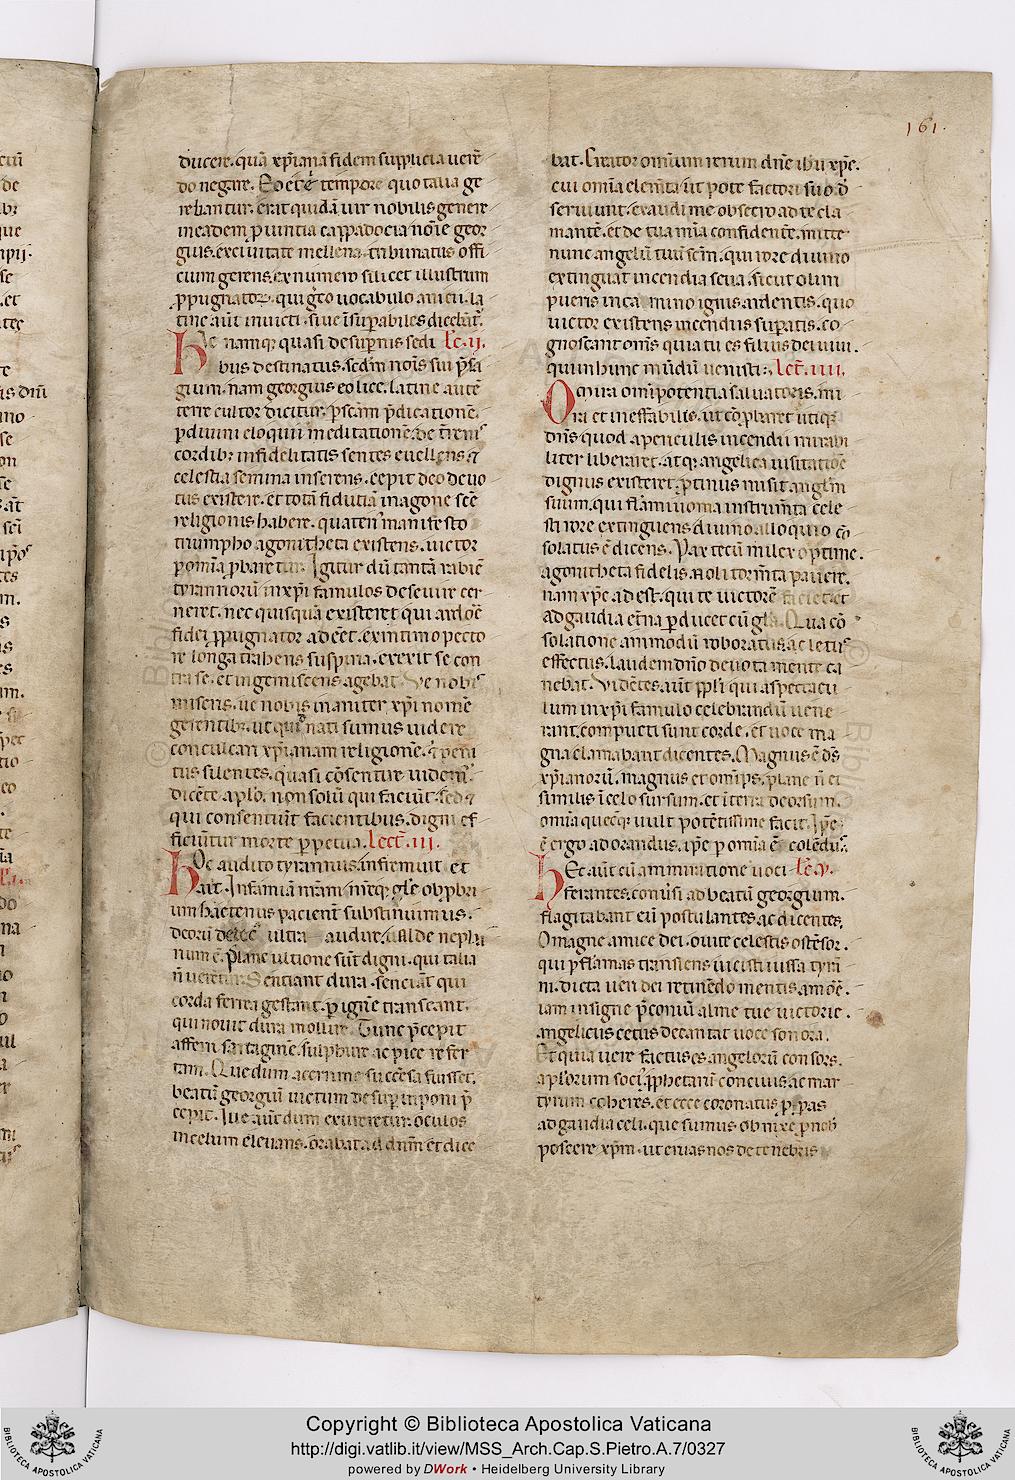 161.
ducere. quā xp̄ianā fidem supplicia uerē
do negare. Eo etē tempore quo talia ge
rebantur. erat quidā uir nobilis genere
in eadem ꝓuintia cappadocia noīe geor
gius. ex ciuitate mellena. tribunatus offi
cium gerens. ex numero silicet illustrium
ꝓpugnator. qui gͣto uocabulo anicii. la
tine aūt inuicti. siue īsuꝑabiles dicebāt̄.
Hic namq; quasi de suꝑnis sedi Lc̄. ii.
bus destinatus. sedm̄ nois sui p̄sa
gium. nam georgius eo licc. latine autē
terre cultor dicitur. ꝑ scām p̄dicationē.
ꝑ diuini eloquii meditationē. de t̄renis
cordib; infidelitatis sentes euellens. ⁊
celestia semina inserens. cepit deo deuo
tus existere. et totā fidutiā in agone scē
religionis habere. quaten᷒ manifesto
triumpho agonitheta existens. uictor
ꝑ omīa ꝓbaretur. Igitur dū tantā rabiē
tyrannorū in xp̄i famulos deseuire cer
neret. nec quisquā existeret qui ardoē
fidei ꝓpugnator adeēt. ex intimo pecto
re longa trahens suspiria. erexit se con
tra se. et ingemiscens agebat. Ve nobis
miseris. ue nobis inaniter xp̄i nomē
gerentib;. ut quid nati sumus uidere
conculcari xp̄ianam religionē. ⁊ peni
tus silentes. quasi cōsentire uidem̄.
dicēte aplō. non solū qui faciūt. sed ⁊
qui consentiūt facientibus. digni ef
ficiūtur morte perpetua. Lect̄. iii.
Hoc audito tyrannus infremuit et
ait. Infamiā nr̄am inīeq; gl̄e obꝓbri
um hactenus pacient̄ substinuimus.
deorū ultra audire. ualde nephā
num ē. plane ultione sūt digni. qui talia
n̄ uerētur. Sentiant dura. senciāt qui
corda ferrea gestant. ꝑ ignē transeant.
qui nouit dura mollire. Tunc p̄cepit
afferri sartaginē. sulphure ac pice refer
tam. Que dum acerrime succēsa fuisset.
beatū georgiū uictum desuꝑ inponi p̄
cepit. Iue aūt dum exueretur. oculos
in celum eleuans. orabat ad dn̄m et dice
bat. Creator omnium rerum dn̄e ihū xp̄e.
cui omīa elem̄ta ut pote factori suo d̄
seruiunt. exaudi me obsecro ad te cla
mantē. et de tua mīa confidentē. mitte
nunc angelū tuū scm̄. qui rore diuino
extinguat incendia seua. sicut olim
pueris in camino ignis ardentis. quo
uictor existens incendiis suꝑatis. co
gnoscant oms̄ quia tu es filius dei uiui.
qui in hunc mūdū uenisti. Lect̄. iiii.
O mira omīpotentia saluatoris. mi
ra et ineffabilis. ut cōꝓbaret utiq;
dn̄s quod a periculis incendii mirabi
liter liberaret. atq; angelica uisitatiōe
dignus existeret. ꝓtinus misit angl̄m
suum. qui flāmiuoma instrum̄ta cele
sti rore extinguens diuino alloquio cō
solatus ē dicens. Pax tecū milex optime.
agonitheta fidelis. noli torm̄ta pauere.
nam xp̄c adest. qui te uictorē faciet. et
ad gaudia et̄na ꝑducet cū gl̄a. Qua cō
solatione ammodū roboratus. ac letus
effectus. laudem dn̄o deuota mente ca
nebat. Vidētes aūt pp̄li qui a spectacu
lum in xp̄i famulo celebrandū uene
rant. compucti sunt corde. et uoce ma
gna clamabant dicentes. Magnus ē ds̄
xp̄ianorū. magnus et omīps. plane n̄ ei
similis ī celo sursum. et ī terra deorsum.
omīa quecq; uult potētissime facit. Ip̄e
ē ergo adorandus. ip̄e ꝑ omīa ē colēdus.
Hec aūt cū ammiratione uoci Lc̄. v.
ferantes. conuersi ad beatū georgium.
flagitabant eū postulantes. ac dicentes.
O magne amice dei. o uite celestis ostēsor.
qui ꝑ flāmas transiens uicisti iussa tyrā
ni. dicta ueri dei retinēdo mentis amore.
iam insigne p̄coniū alme tue uictorie.
angelicus cetus decantat uoce sonora.
Et quia uere factus es angelorū consors.
apl̄orum socius. ꝓphetarū conciuis. ac mar
tyrum coheres. et ecce coronatus ꝓperas
ad gaudia celi. quesumus ob nixe ꝓ nob̄
poscere xp̄m. ut eruas nos de tenebris
Copyright © Biblioteca Apostolica Vaticana
http://digi.vatlib.it/view/MSS_Arch.Cap.S.Pietro.A.7/0327
powered by DWork • Heidelberg University Library